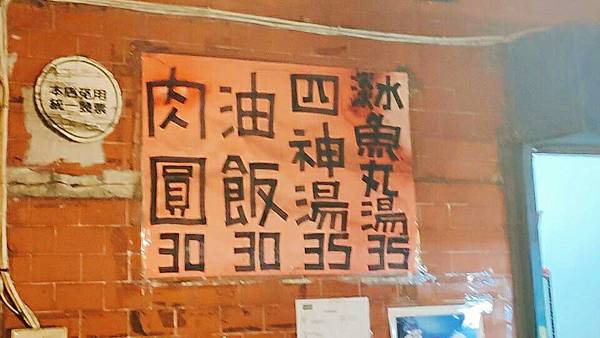 本店免用
統一發票
肉圓30
油飯30
四神湯35
淡水魚丸湯35